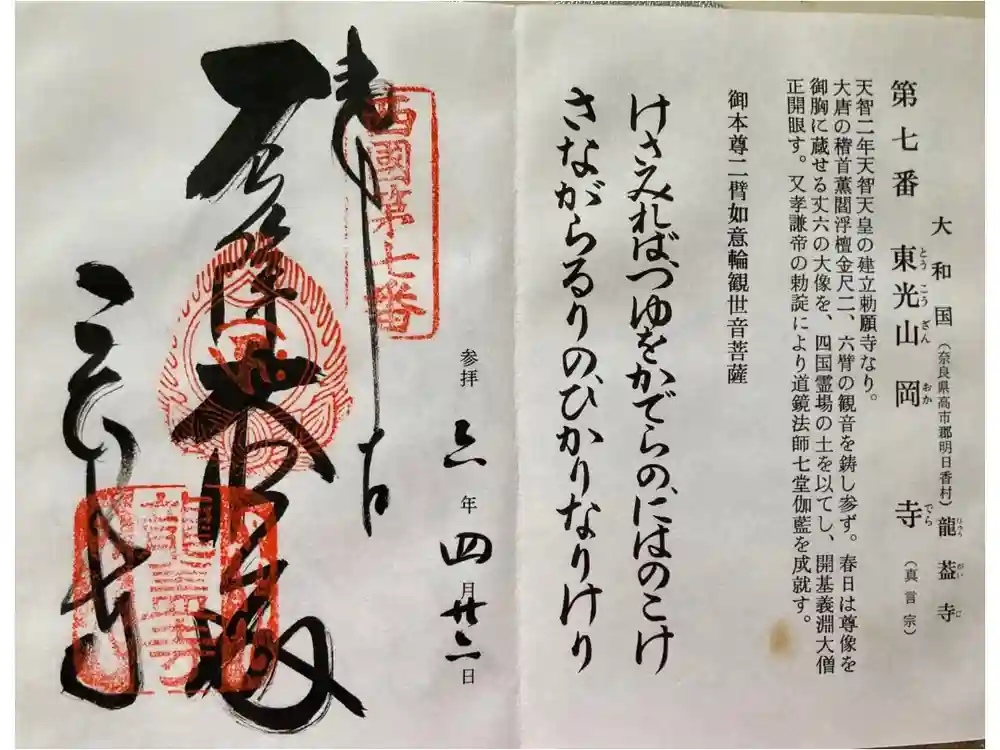 大和国(奈良県高市郡明日香村)龍蓋寺
りゅうがいじ
第七番 東光山 岡寺(真言宗)
とうこうざん おかでら
天智二年天智天皇の建立勅願寺なり。
大唐の稽首薫閻浮檀金尺二、六臂の観音を鋳し参ず。春日は尊像を
御胸に蔵せる丈六の大像を、四国霊場の土を以てし、開基義淵大僧
正開眼す。又孝謙帝の勅諚により道鏡法師七堂伽藍を成就す。
御本尊二臂如意輪観世音菩薩
けさみればつゆをかでらのにはのこけ
さながらるりのひかりなりけり
参拝 年四月廿六日
奉
西國第七番
龍蓋寺